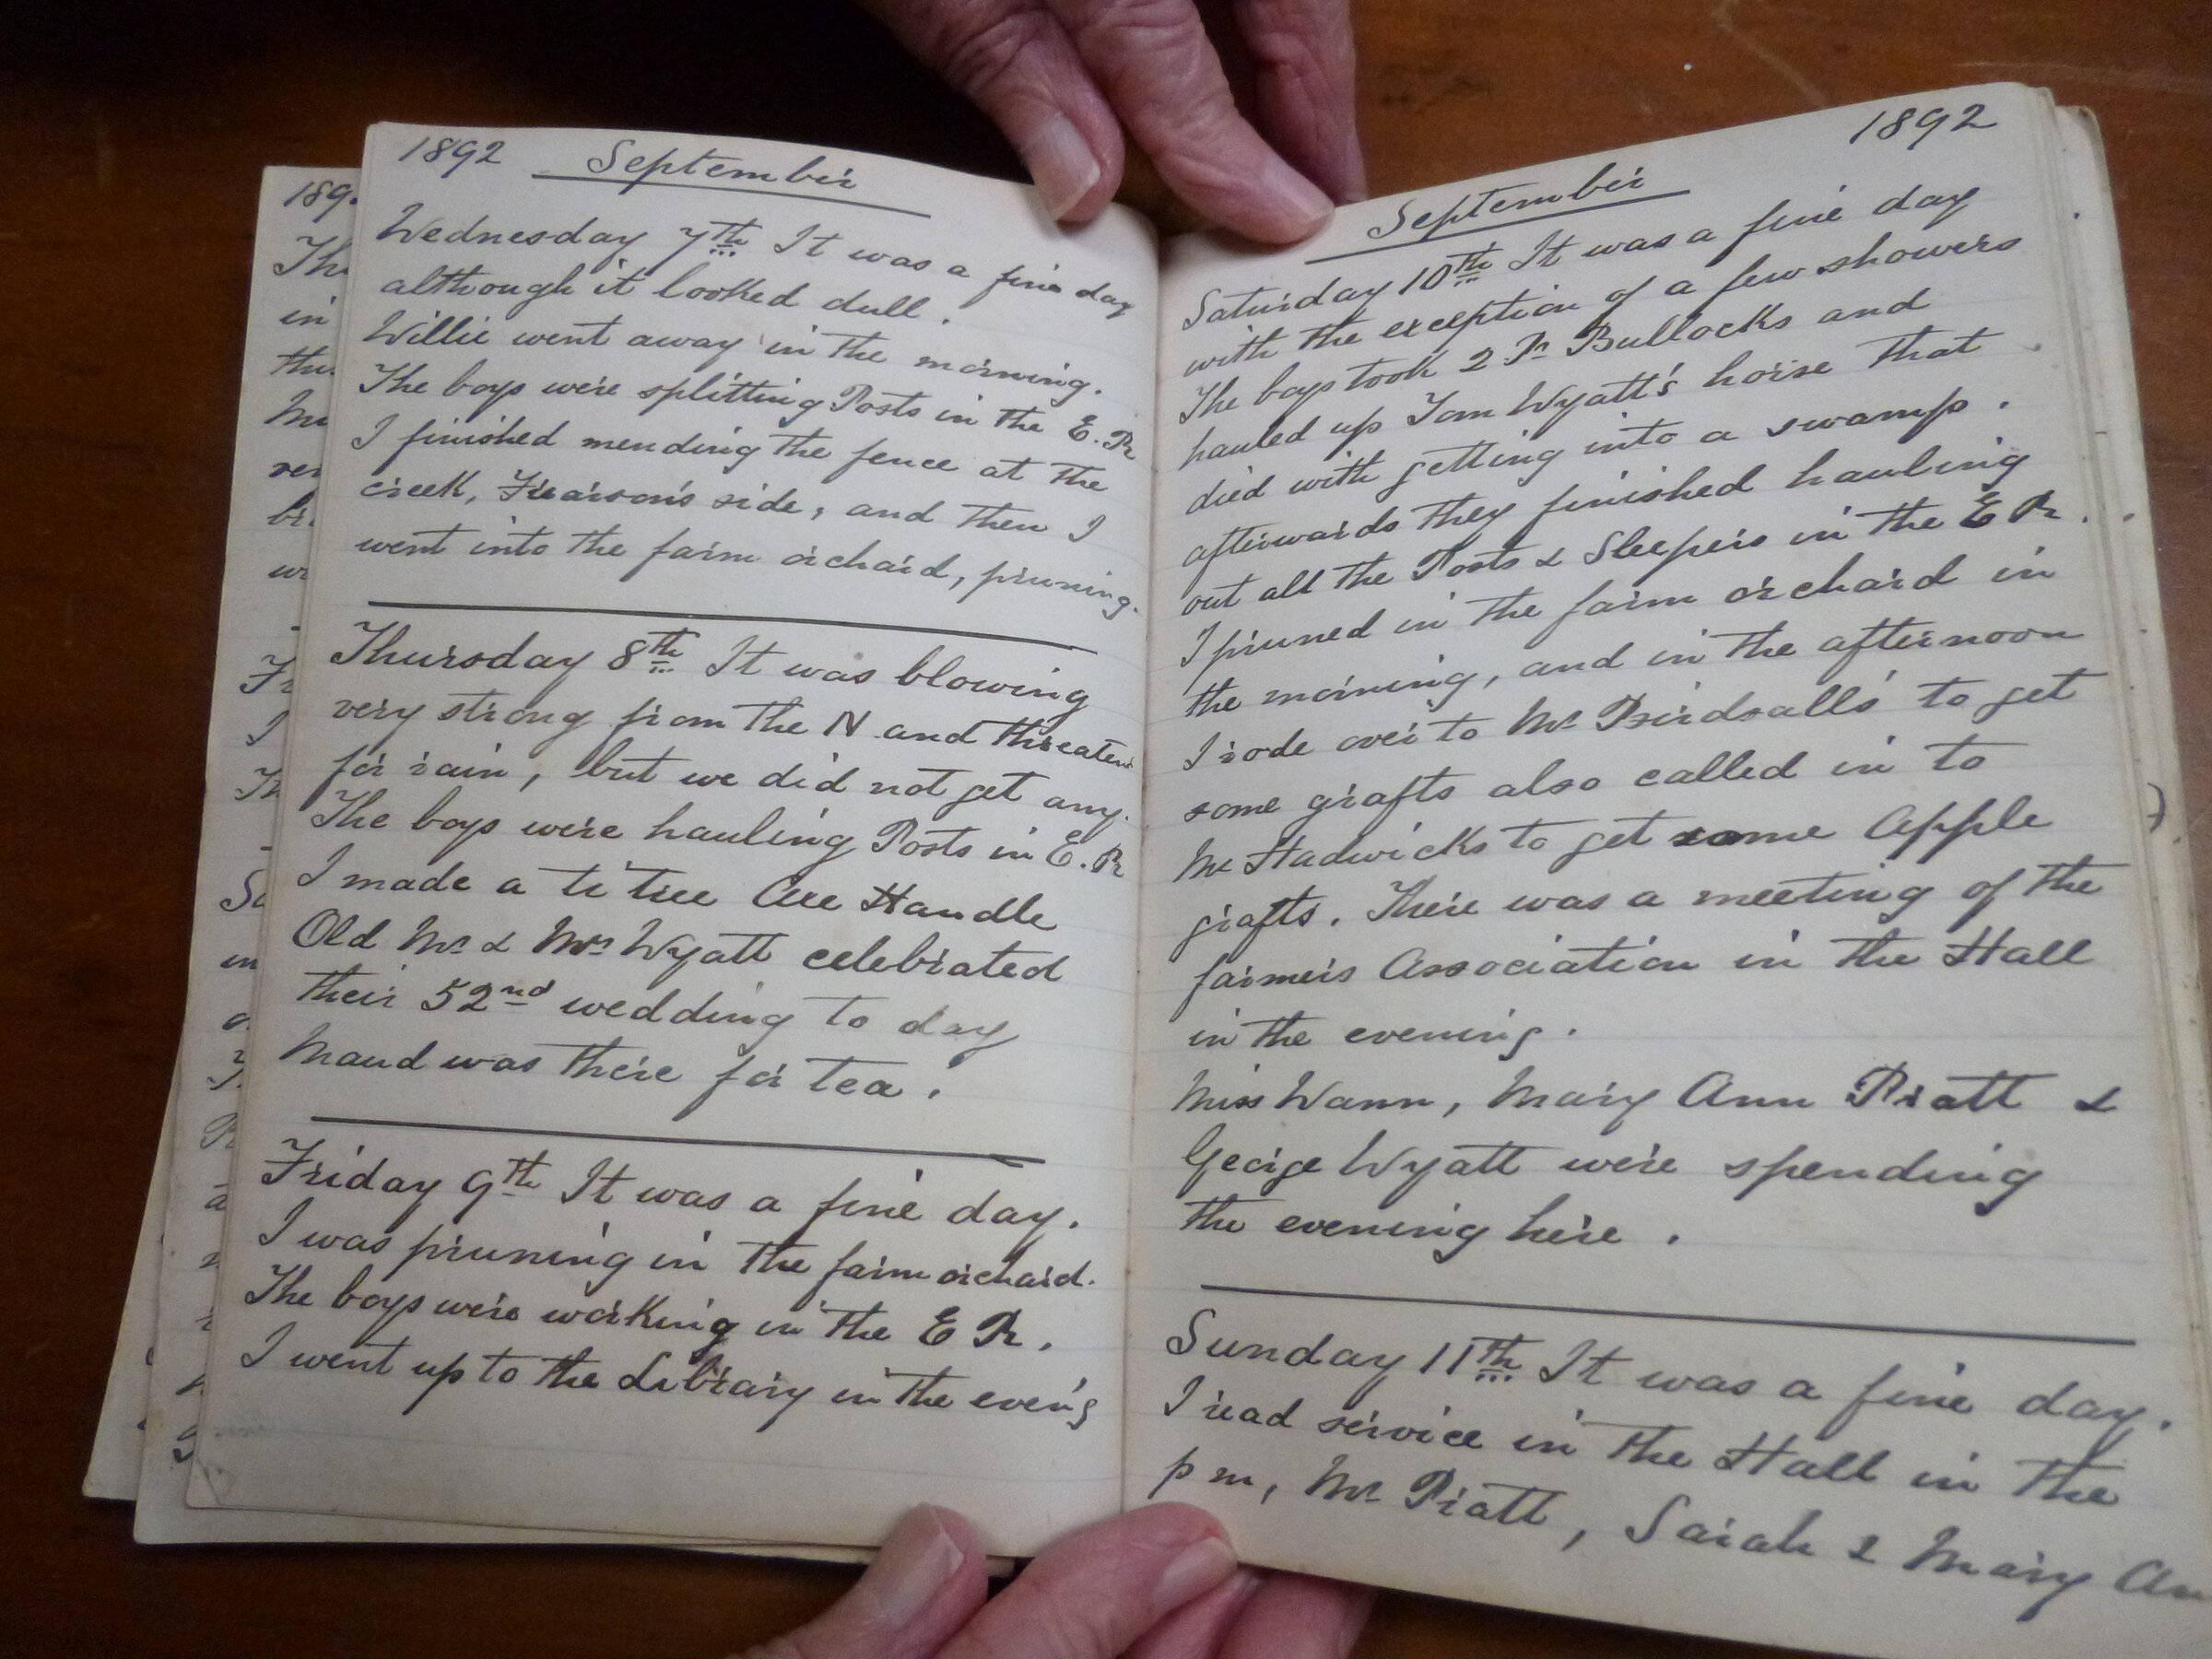 1892 September
Wednesday 7th It was a fine day
although it looked dull.
Willie went away in the morning.
The boys were splitting Posts in the E. R
I finished mending the fence at the
creek, Frearson's side, and then I
went into the farm orchard, pruning.
Thursday 8th It was blowing
very strong from the N and threatend
for rain, but we did not get any.
The boys were hauling Posts in E. R
I made a ti tree Axe Handle
Old Mr & Mrs Wyatt celebrated
their 52nd wedding to day
Maud was there for tea.
Friday 9th It was a fine day.
I was pruning in the farm orchard.
The boys were working in the E R.
I went up to the Library in the even'g
1892
September
Saturday 10th It was a fine day
with the exception of a few showers
The boys took 2 Pr Bullocks and
hauled up Tom Wyatt's horse that
died with getting into a swamp.
afterwards they finished hauling
out all the Posts & Sleepers in the E R.
I pruned in the farm orchard in
the morning, and in the afternoon
I rode over to Mr Birdsall's to get
some grafts also called in to
Mr Hadwicks to get some Apple
grafts. There was a meeting of the
farmers Association in the Hall
in the evening.
Miss Wann, Mary Ann Pratt &
George Wyatt were spending
the evening here.
Sunday 11th It was a fine day.
I read service in the Hall in the
p m, Mr Pratt, Sarah & Mary An
189
Th
in